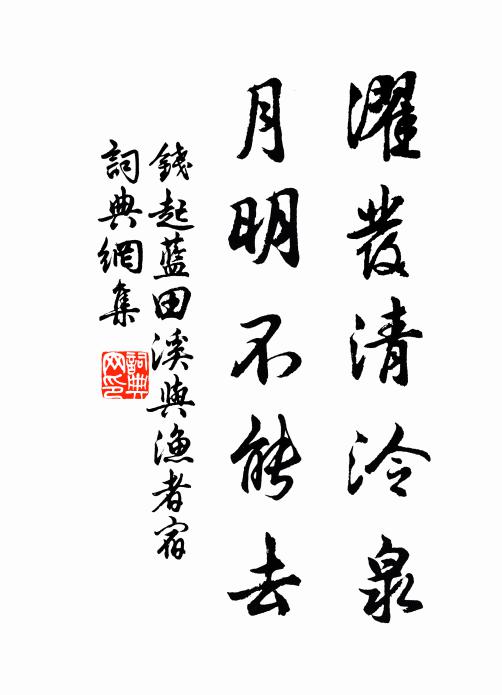 濯發清泠泉
月明不能去
錢起藍田溪與漁者宿
詞典網集
詞典網印